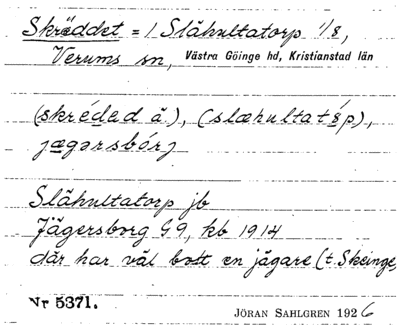 Skräddet = 1 Slähultatorp 1/8,
Verums sn, Västra Göinge hd, Kristianstad län
(skrédad ä.), (slæhultatårp),
jægərsbórj
Slähultatorp jb
Jägersborg G9, kb 1914
där har väl bott en jägare (t. Skeinge,
Nr 5371.
JÖRAN SAHLGREN 1926